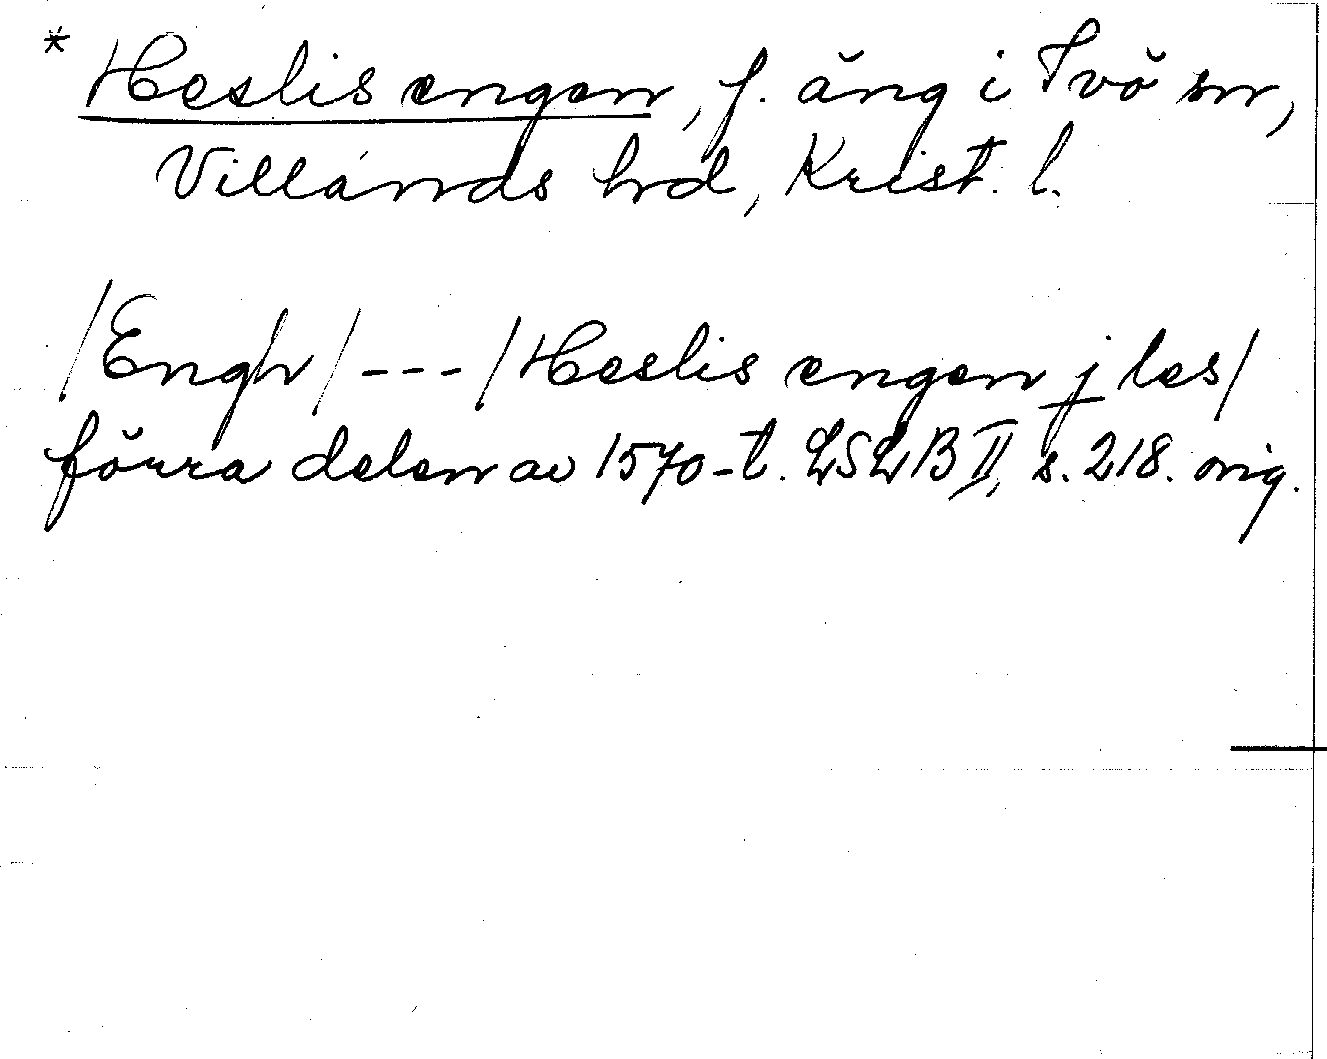 * Heslis engen, f. äng i Ivö sn,
Villands hd, Krist. l.
/Engh/ --- /Heslis engen j les/
förra delen av 1570-t. LSLB II, s. 218. orig.